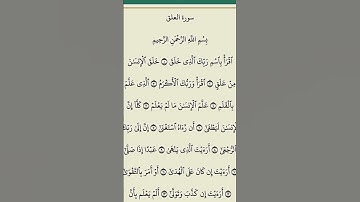 سورة العلق
بِسْمِ اللَّهِ الرَّحْمَٰنِ الرَّحِيمِ
ٱقْرَأْ بِٱسْمِ رَبِّكَ ٱلَّذِى خَلَقَ ۝ خَلَقَ ٱلْإِنسَٰنَ
مِنْ عَلَقٍ ۝ ٱقْرَأْ وَرَبُّكَ ٱلْأَكْرَمُ ۝ ٱلَّذِى عَلَّمَ
بِٱلْقَلَمِ ۝ عَلَّمَ ٱلْإِنسَٰنَ مَا لَمْ يَعْلَمْ ۝ كَلَّآ إِنَّ
ٱلْإِنسَٰنَ لَيَطْغَىٰٓ ۝ أَن رَّءَاهُ ٱسْتَغْنَىٰٓ ۝ إِنَّ إِلَىٰ رَبِّكَ
ٱلرُّجْعَىٰٓ ۝ أَرَءَيْتَ ٱلَّذِى يَنْهَىٰ ۝ عَبْدًا إِذَا صَلَّىٰٓ
۝ أَرَءَيْتَ إِن كَانَ عَلَى ٱلْهُدَىٰٓ ۝ أَوْ أَمَرَ بِٱلتَّقْوَىٰٓ
۝ أَرَءَيْتَ إِن كَذَّبَ وَتَوَلَّىٰٓ ۝ أَلَمْ يَعْلَم بِأَنَّ